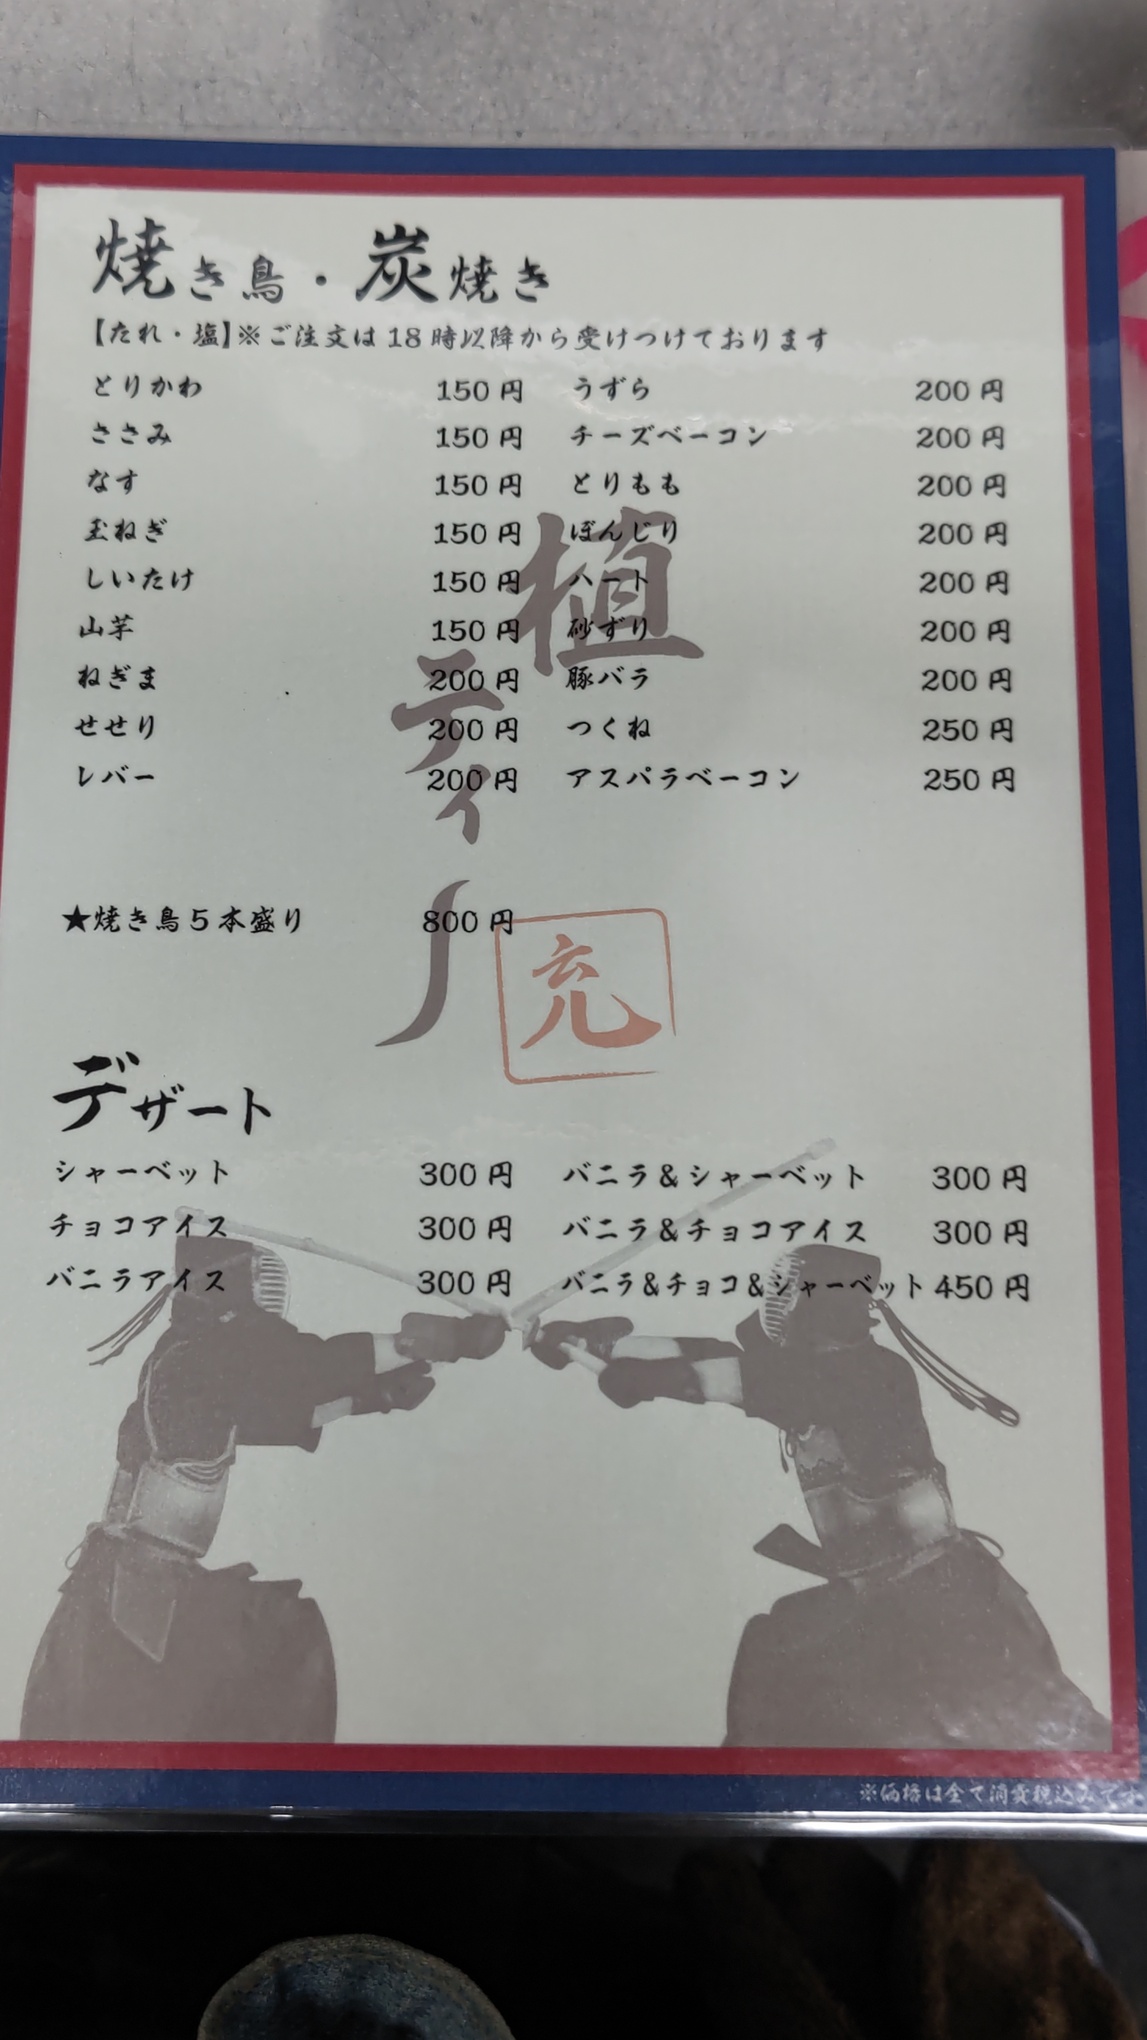 焼き鳥・炭焼き
【たれ・塩】※ご注文は18時以降から受けつけております
とりかわ 150円 うずら 200円
ささみ 150円 チーズベーコン 200円
なす 150円 とりもも 200円
玉ねぎ 150円 ぼんじり 200円
しいたけ 150円 ハート 200円
山芋 150円 砂ずり 200円
ねぎま 200円 豚バラ 200円
せせり 200円 つくね 250円
レバー 200円 アスパラベーコン 250円
植ティー
★焼き鳥5本盛り 800円
充
デザート
シャーベット 300円 バニラ&シャーベット 300円
チョコアイス 300円 バニラ&チョコアイス 300円
バニラアイス 300円 バニラ&チョコ&シャーベット 450円
※価格は全て消費税込みです